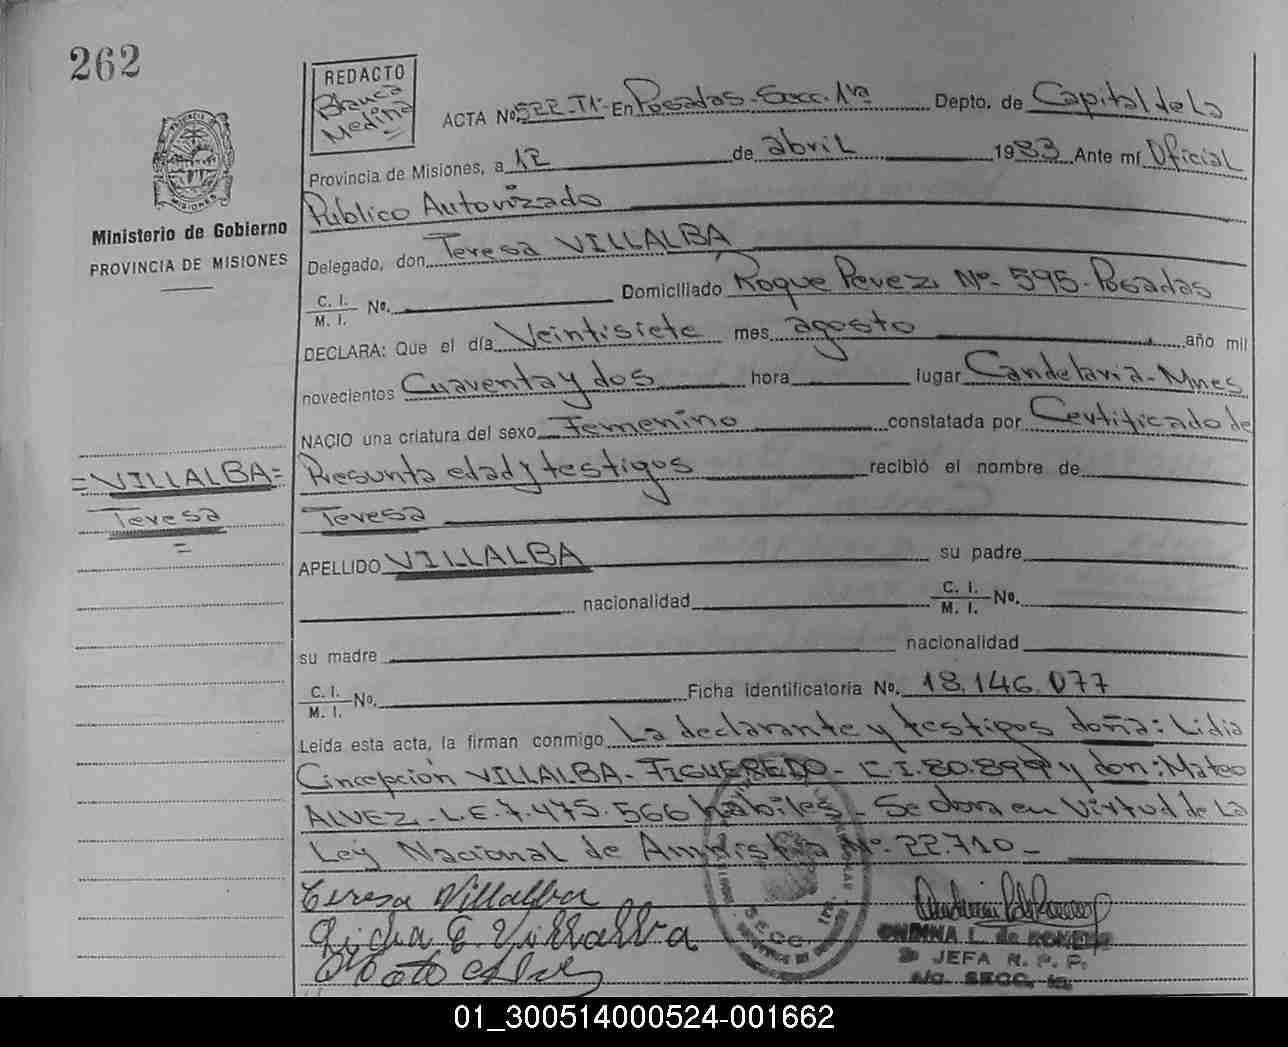 262
REDACTO
Blanca
Medina
ACTA No 522-T1- En Posadas-Secc. 1ra Depto. de Capital de La
Provincia de Misiones, a 12 de abril 1983 Ante mí Oficial
Publico Autorizado
Ministerio de Gobierno
PROVINCIA DE MISIONES
Delegado, don Teresa VILLALBA
C. I. / M. I. No. Domiciliado Roque Perez Nº- 595-Posadas
DECLARA: Que el día Veintisiete mes agosto año mil
novecientos Cuarenta y dos hora lugar Candelaria-Mnes
NACIO una criatura del sexo Femenino constatada por Certificado de
Presunta edad y testigos recibió el nombre de
=VILLALBA=
Teresa
=
Teresa
APELLIDO VILLALBA su padre
nacionalidad C. I. / M. I. No.
su madre nacionalidad
C. I. / M. I. No. Ficha identificatoria No. 18.146.077
Leída esta acta, la firman conmigo La declarante y testigos doña: Lidia
Cincepción VILLALBA-FIGUEREDO-C.I.80.899 y don: Mateo
ALVEZ-L.E.7.475.566 habiles- Se obra en Virtud de La
Ley Nacional de Amnistia Nº-22.710-
Teresa Villalba
Lidia C. Villalba
Mateo Alvez
SECC.
ONDINA L. de ROMERO
JEFA R. P. P.
A/C. SECC. 1a.
01_300514000524-001662